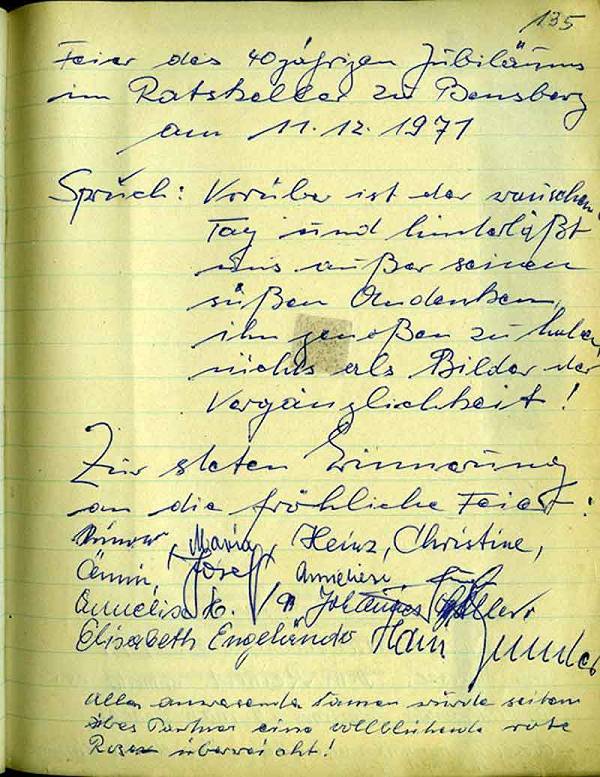 135
Feier des 40jährigen Jubiläums
im Ratskeller zu Bensberg
am 11.12.1971
Spruch: Vorüber ist der
Tag und hinterläßt
uns außer seinen
süßen Andenken,
ihn genoßen zu haben,
nichts als Bilder der
Vergänglichkeit!
Zur steten Erinnerung
an die fröhliche Feier:
Maria, Heinz, Christine,
Josef, Anneliese,
Johannes
Elisabeth Hans
Allen anwesenden Damen wurde seitens
Partner eine vollblühende rote
Rose überreicht!